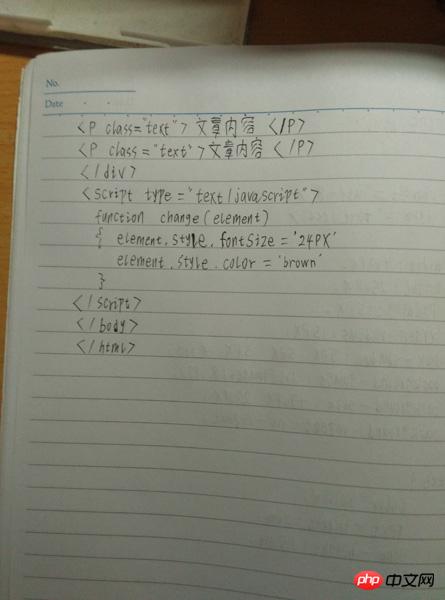 No.
Date
<p class="text">文章内容 </p>
<p class="text">文章内容 </p>
</div>
<script type="text/javascript">
function change(element)
{ element.style.fontSize = '24PX'
element.style.color = 'brown'
}
</script>
</body>
</html>
php 中文网